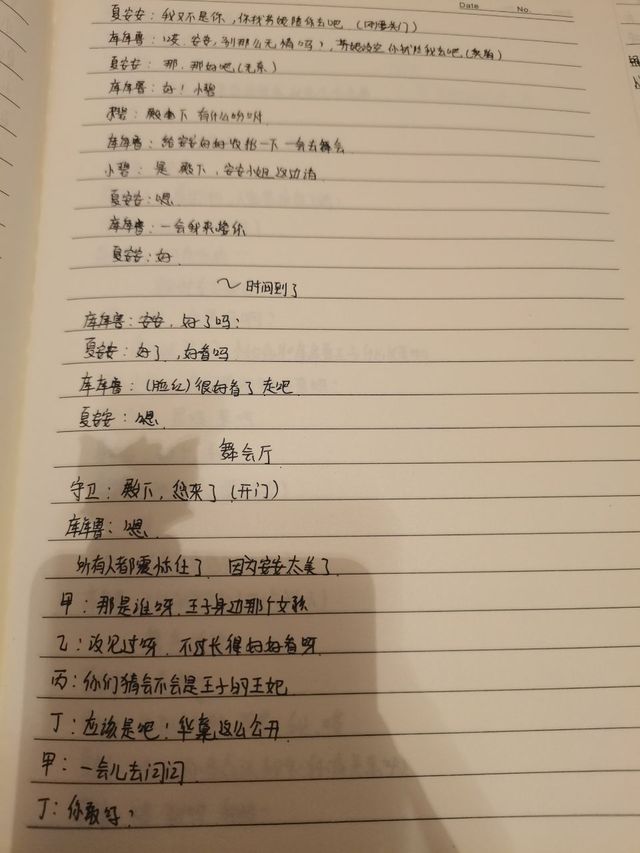 Date No.
夏安安：我又不是你，你找莫妮陪你去吧（闭重头门）
库库鲁：哎，安安，别那么无情吗？，莫妮没空你就陪我去吧（卖萌）
夏安安：那，那好吧（无奈）
库库鲁：好！小碧
小碧：殿下 有什么吩咐
库库鲁：给安安好好收拾一下 一会去舞会
小碧：是 殿下，安安小姐这边请
夏安安：嗯
库库鲁：一会我来接你
夏安安：好
～时间到了
库库鲁：安安，好了吗？
夏安安：好了，好看吗
库库鲁：（脸红）很好看了 走吧
夏安安：嗯
舞会厅
守卫：殿下，您来了（开门）
库库鲁：嗯
所有人都震惊住了 因为安安太美了
甲：那是谁呀 王子身边那个女孩
乙：没见过呀 不过长得好好看呀
丙：你们猜会不会是王子的王妃
丁：应该是吧！毕竟这么公开
甲：一会儿去问问
丁：你敢好？